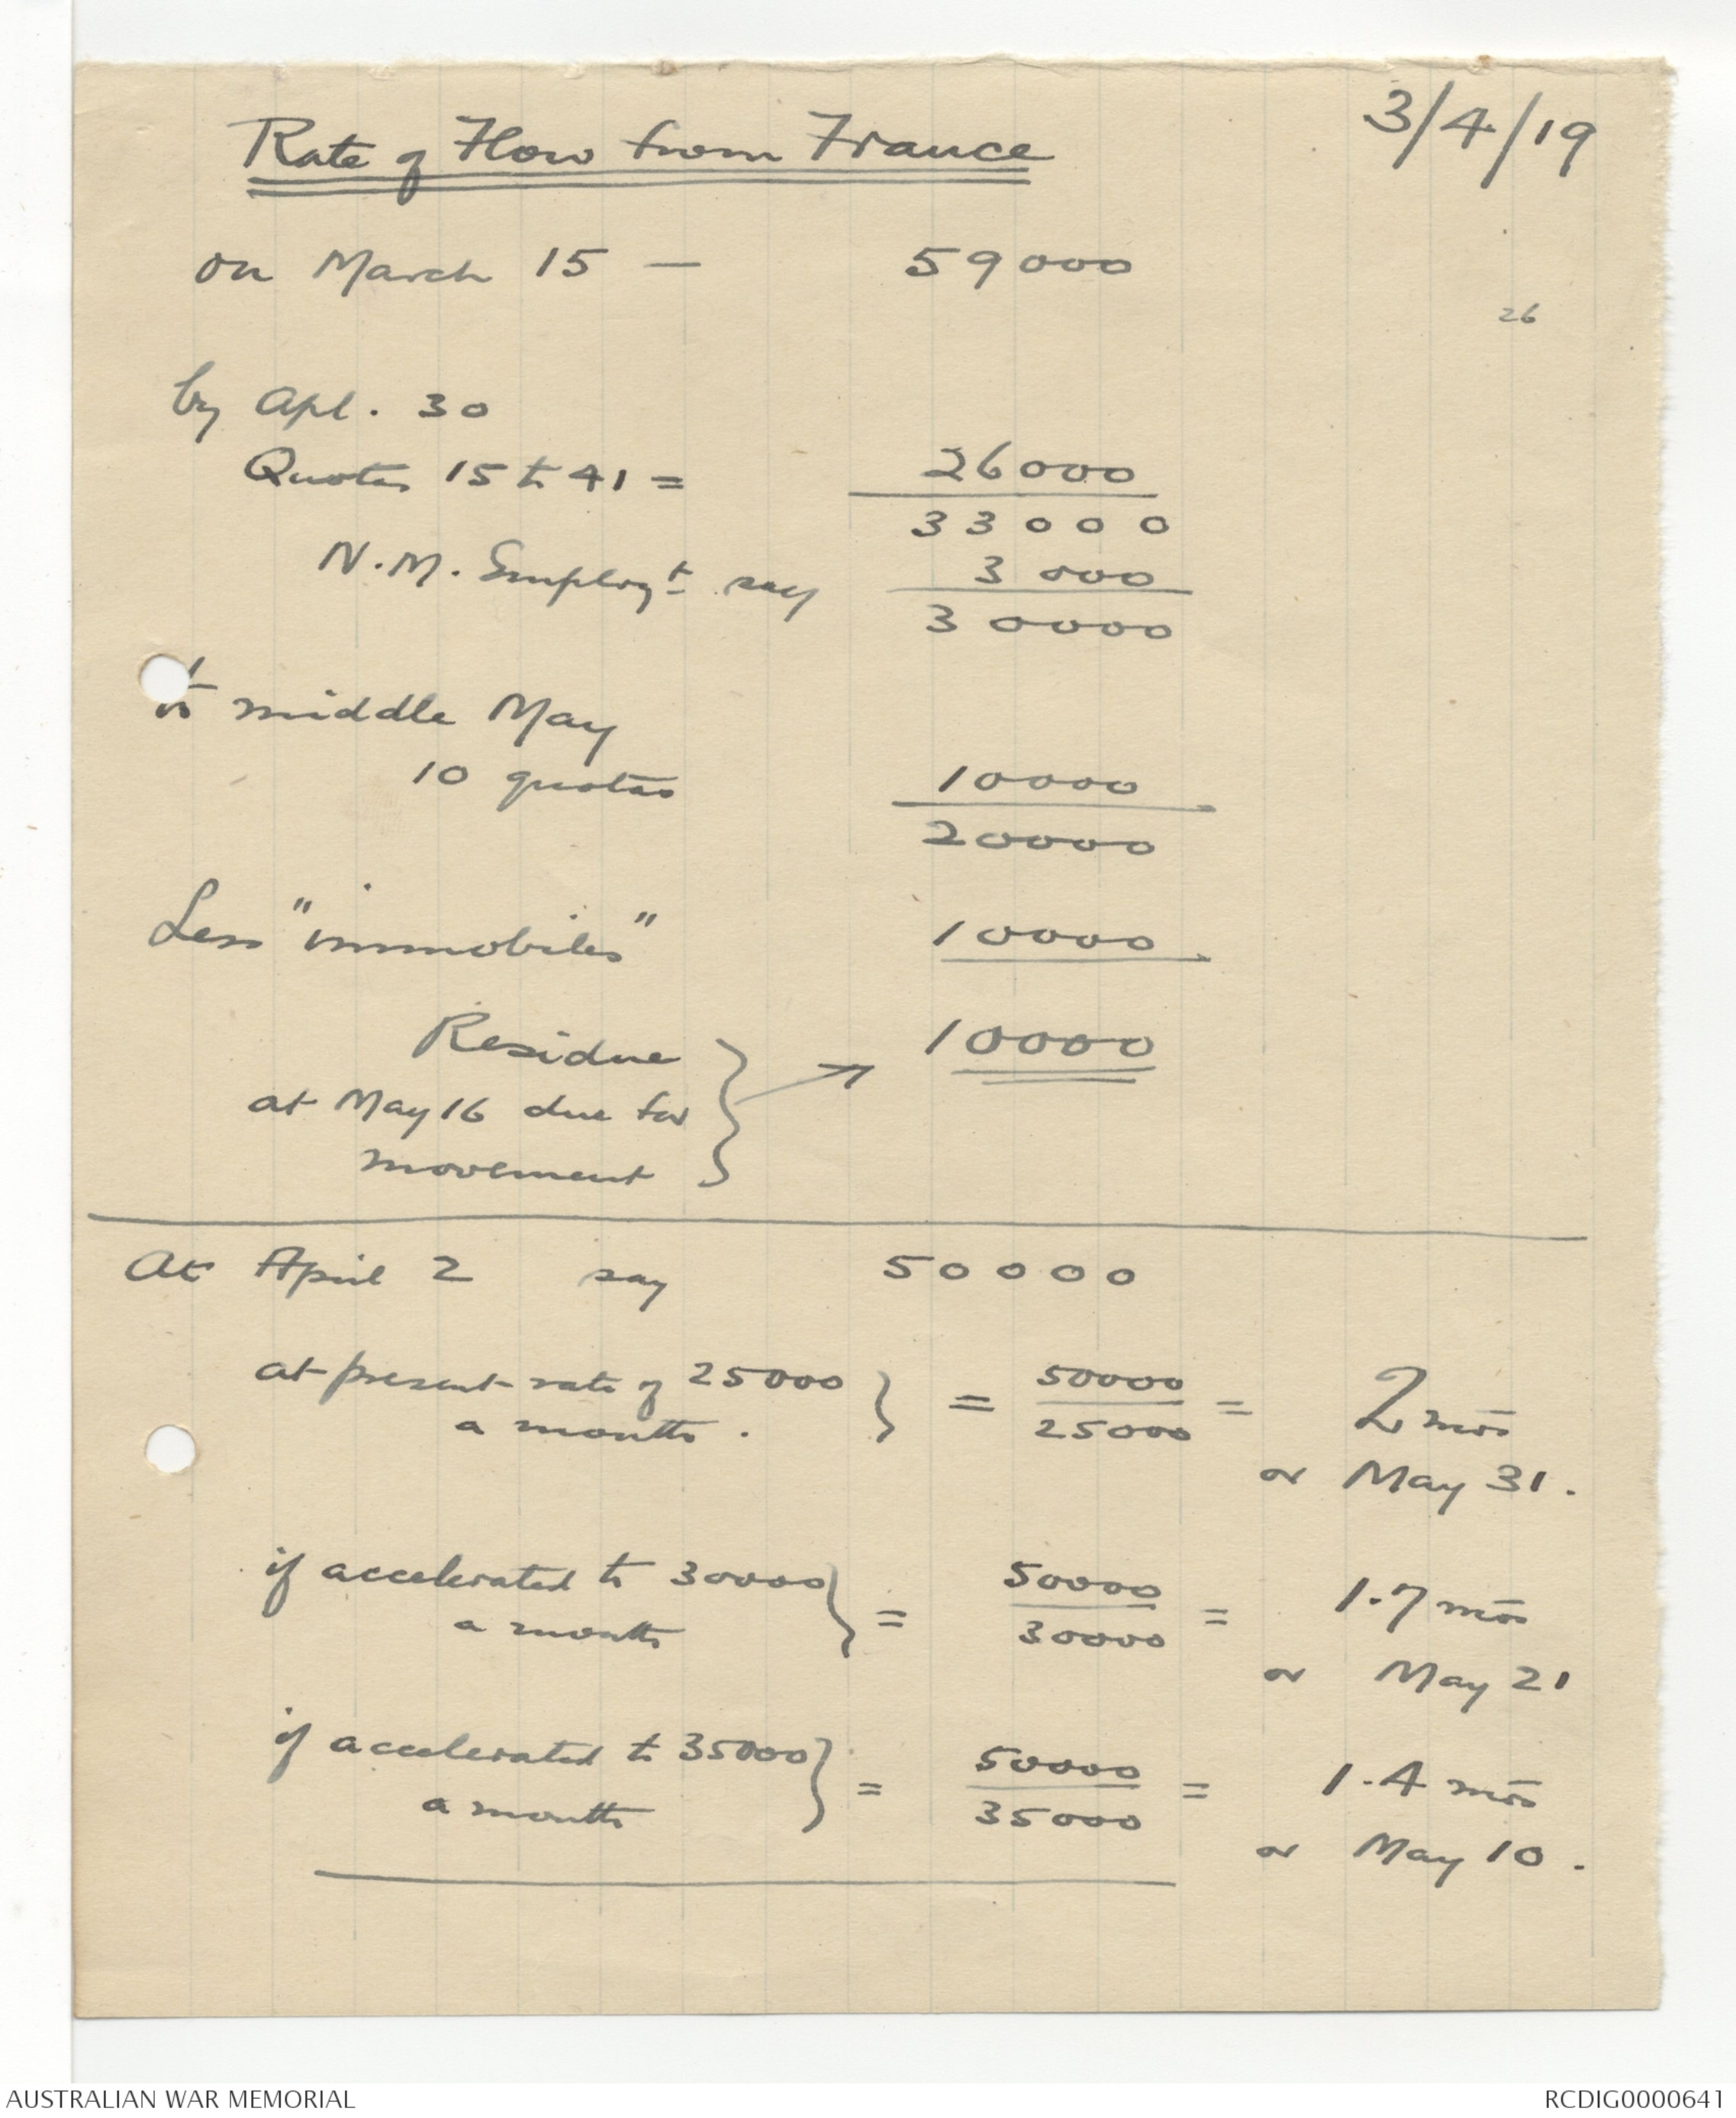 3/4/19
Rate of Flow from France
on March 15 — 59000
26
by Apl. 30
Quotas 15 to 41 = 26000
33000
N.M. Employt say 3000
30000
to middle May
10 quotas 10000
20000
Less "immobiles" 10000
Residue 10000
at May 16 due for
movement
At April 2 say 50000
at present rate of 25000 = 50000/25000 = 2 mos
a month.
or May 31.
if accelerated to 30000 = 50000/30000 = 1.7 mos
a month
or May 21
if accelerated to 35000 = 50000/35000 = 1.4 mos
a month
or May 10.
AUSTRALIAN WAR MEMORIAL
RCDIG0000641